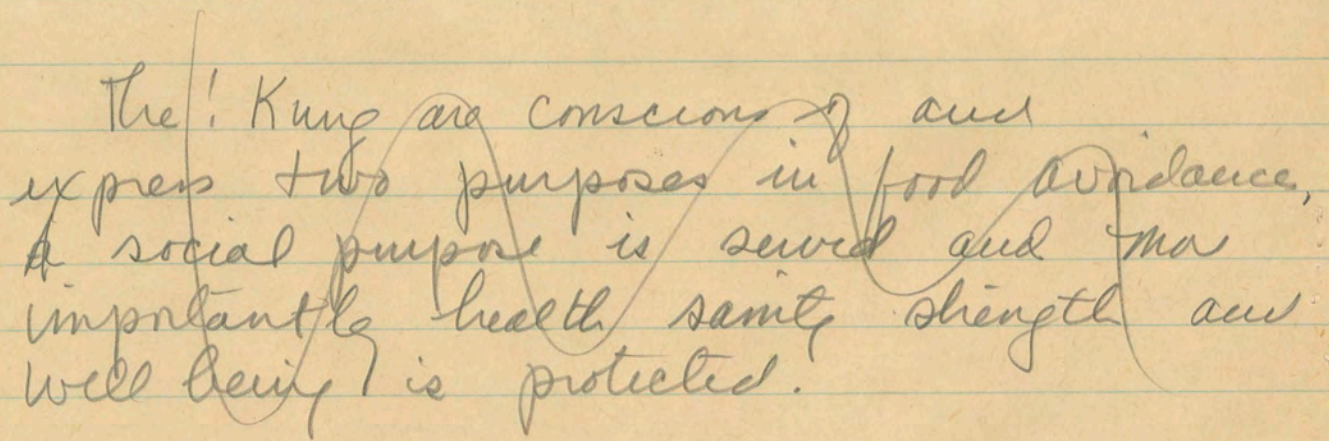 The ! Kung are conscious of and
express two purposes in food avoidance,
A social purpose is served and more
importantly health sanity strength and
well being is protected.